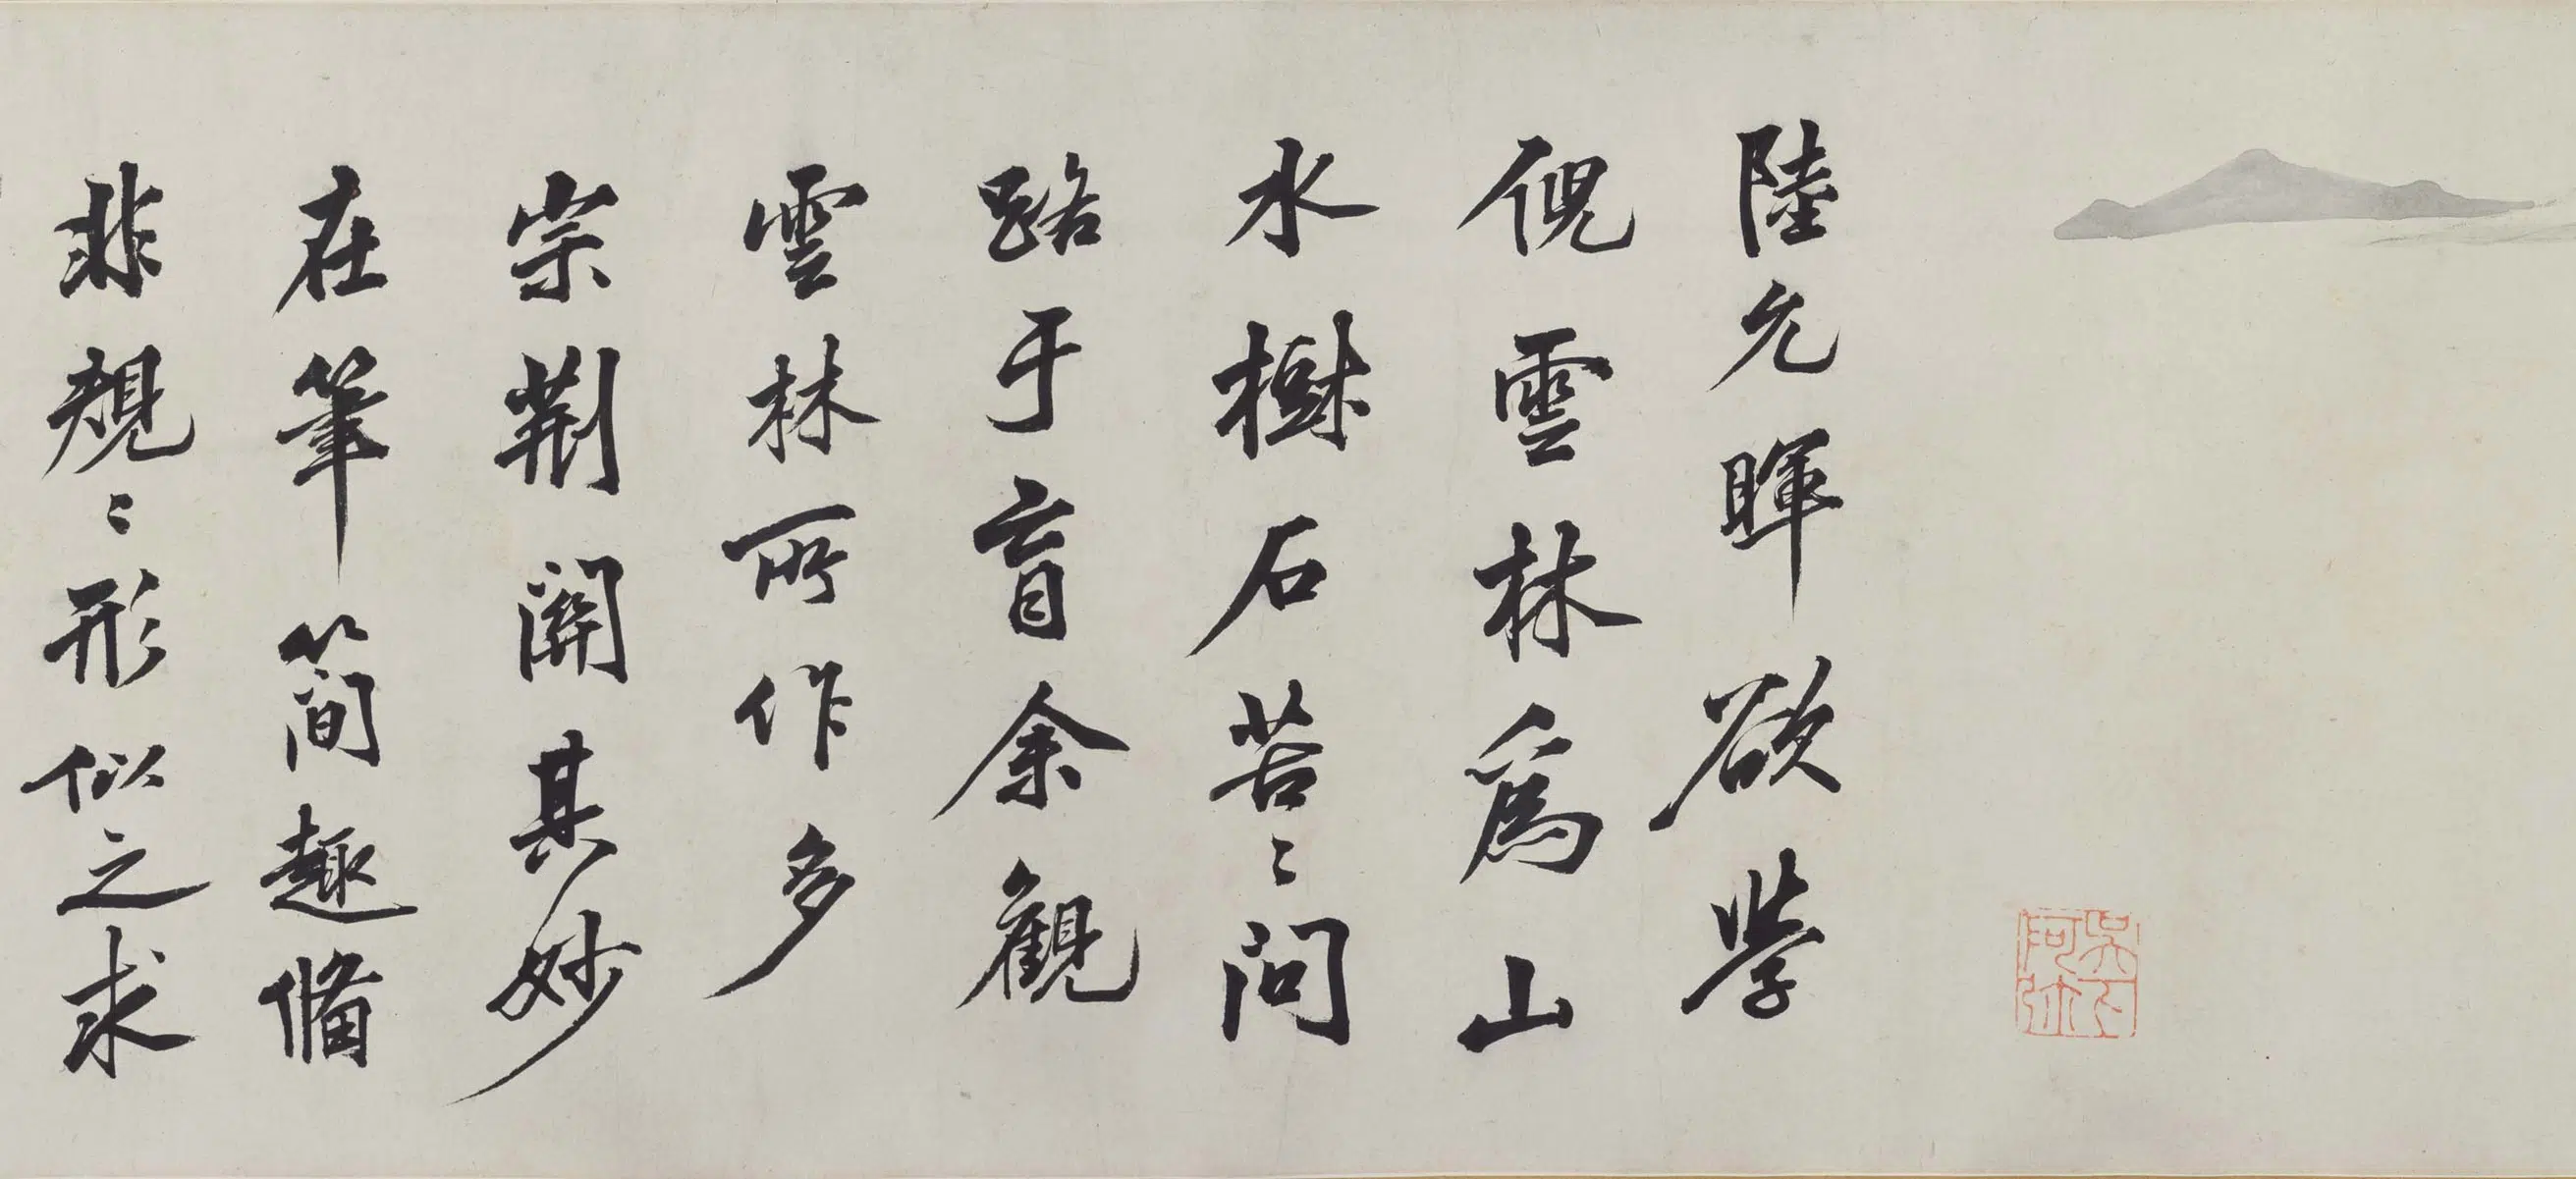 陸允暉欲學
倪雲林爲山
水樹石苦〻問
路于盲余觀
雲林所作多
宗荆関其妙
在筆簡趣備
非規〻形似之求